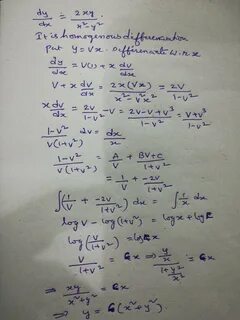 dy/dx = 2xy/(x²-y²)
It is homogenous differenciation
Put y = Vx. Differenciate W.r.x
dy/dx = V(1) + x dV/dx
V + x dV/dx = 2x(Vx)/(x² - V²x²) = 2V/(1-V²)
x dV/dx = 2V/(1-V²) - V = (2V - V + V³)/(1-V²) = (V+V³)/(1-V²)
(1-V²)/(V(1+V²)) dV = dx/x
(1-V²)/(V(1+V²)) = A/V + (BV+C)/(1+V²)
= 1/V + (-2V)/(1+V²)
∫(1/V + (-2V)/(1+V²)) dx = ∫1/x dx
log V - log(1+V²) = log x + log G
log(V/(1+V²)) = log Gx
V/(1+V²) = Gx ⇒ (y/x)/(1+y²/x²) = Gx
⇒ xy/(x²+y²) = Gx
⇒ y = G(x²+y²)